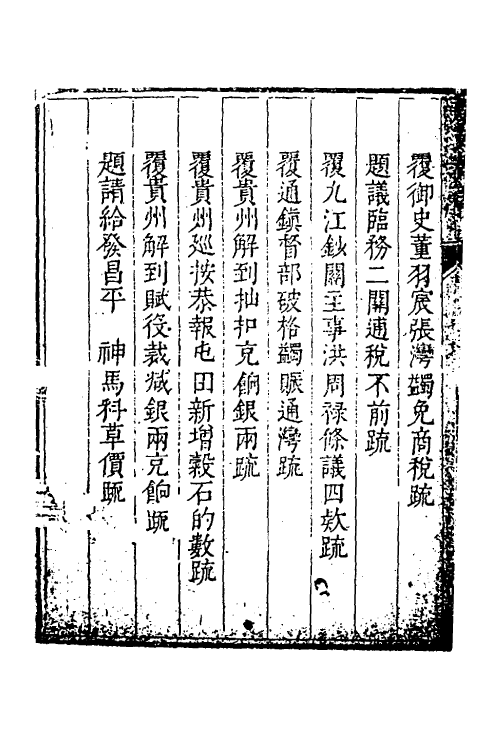 覆御史董羽宸張灣蠲免商稅疏
題議臨務二關逋稅不前疏
覆九江鈔關主事洪周祿條議四欵疏
覆通鎮督部破格蠲賑通灣疏
覆貴州解到抽扣充餉銀兩疏
覆貴州廵按恭報屯田新增穀石的數疏
覆貴州解到賦役裁減銀兩充餉疏
題請給發昌平　神馬料草價疏